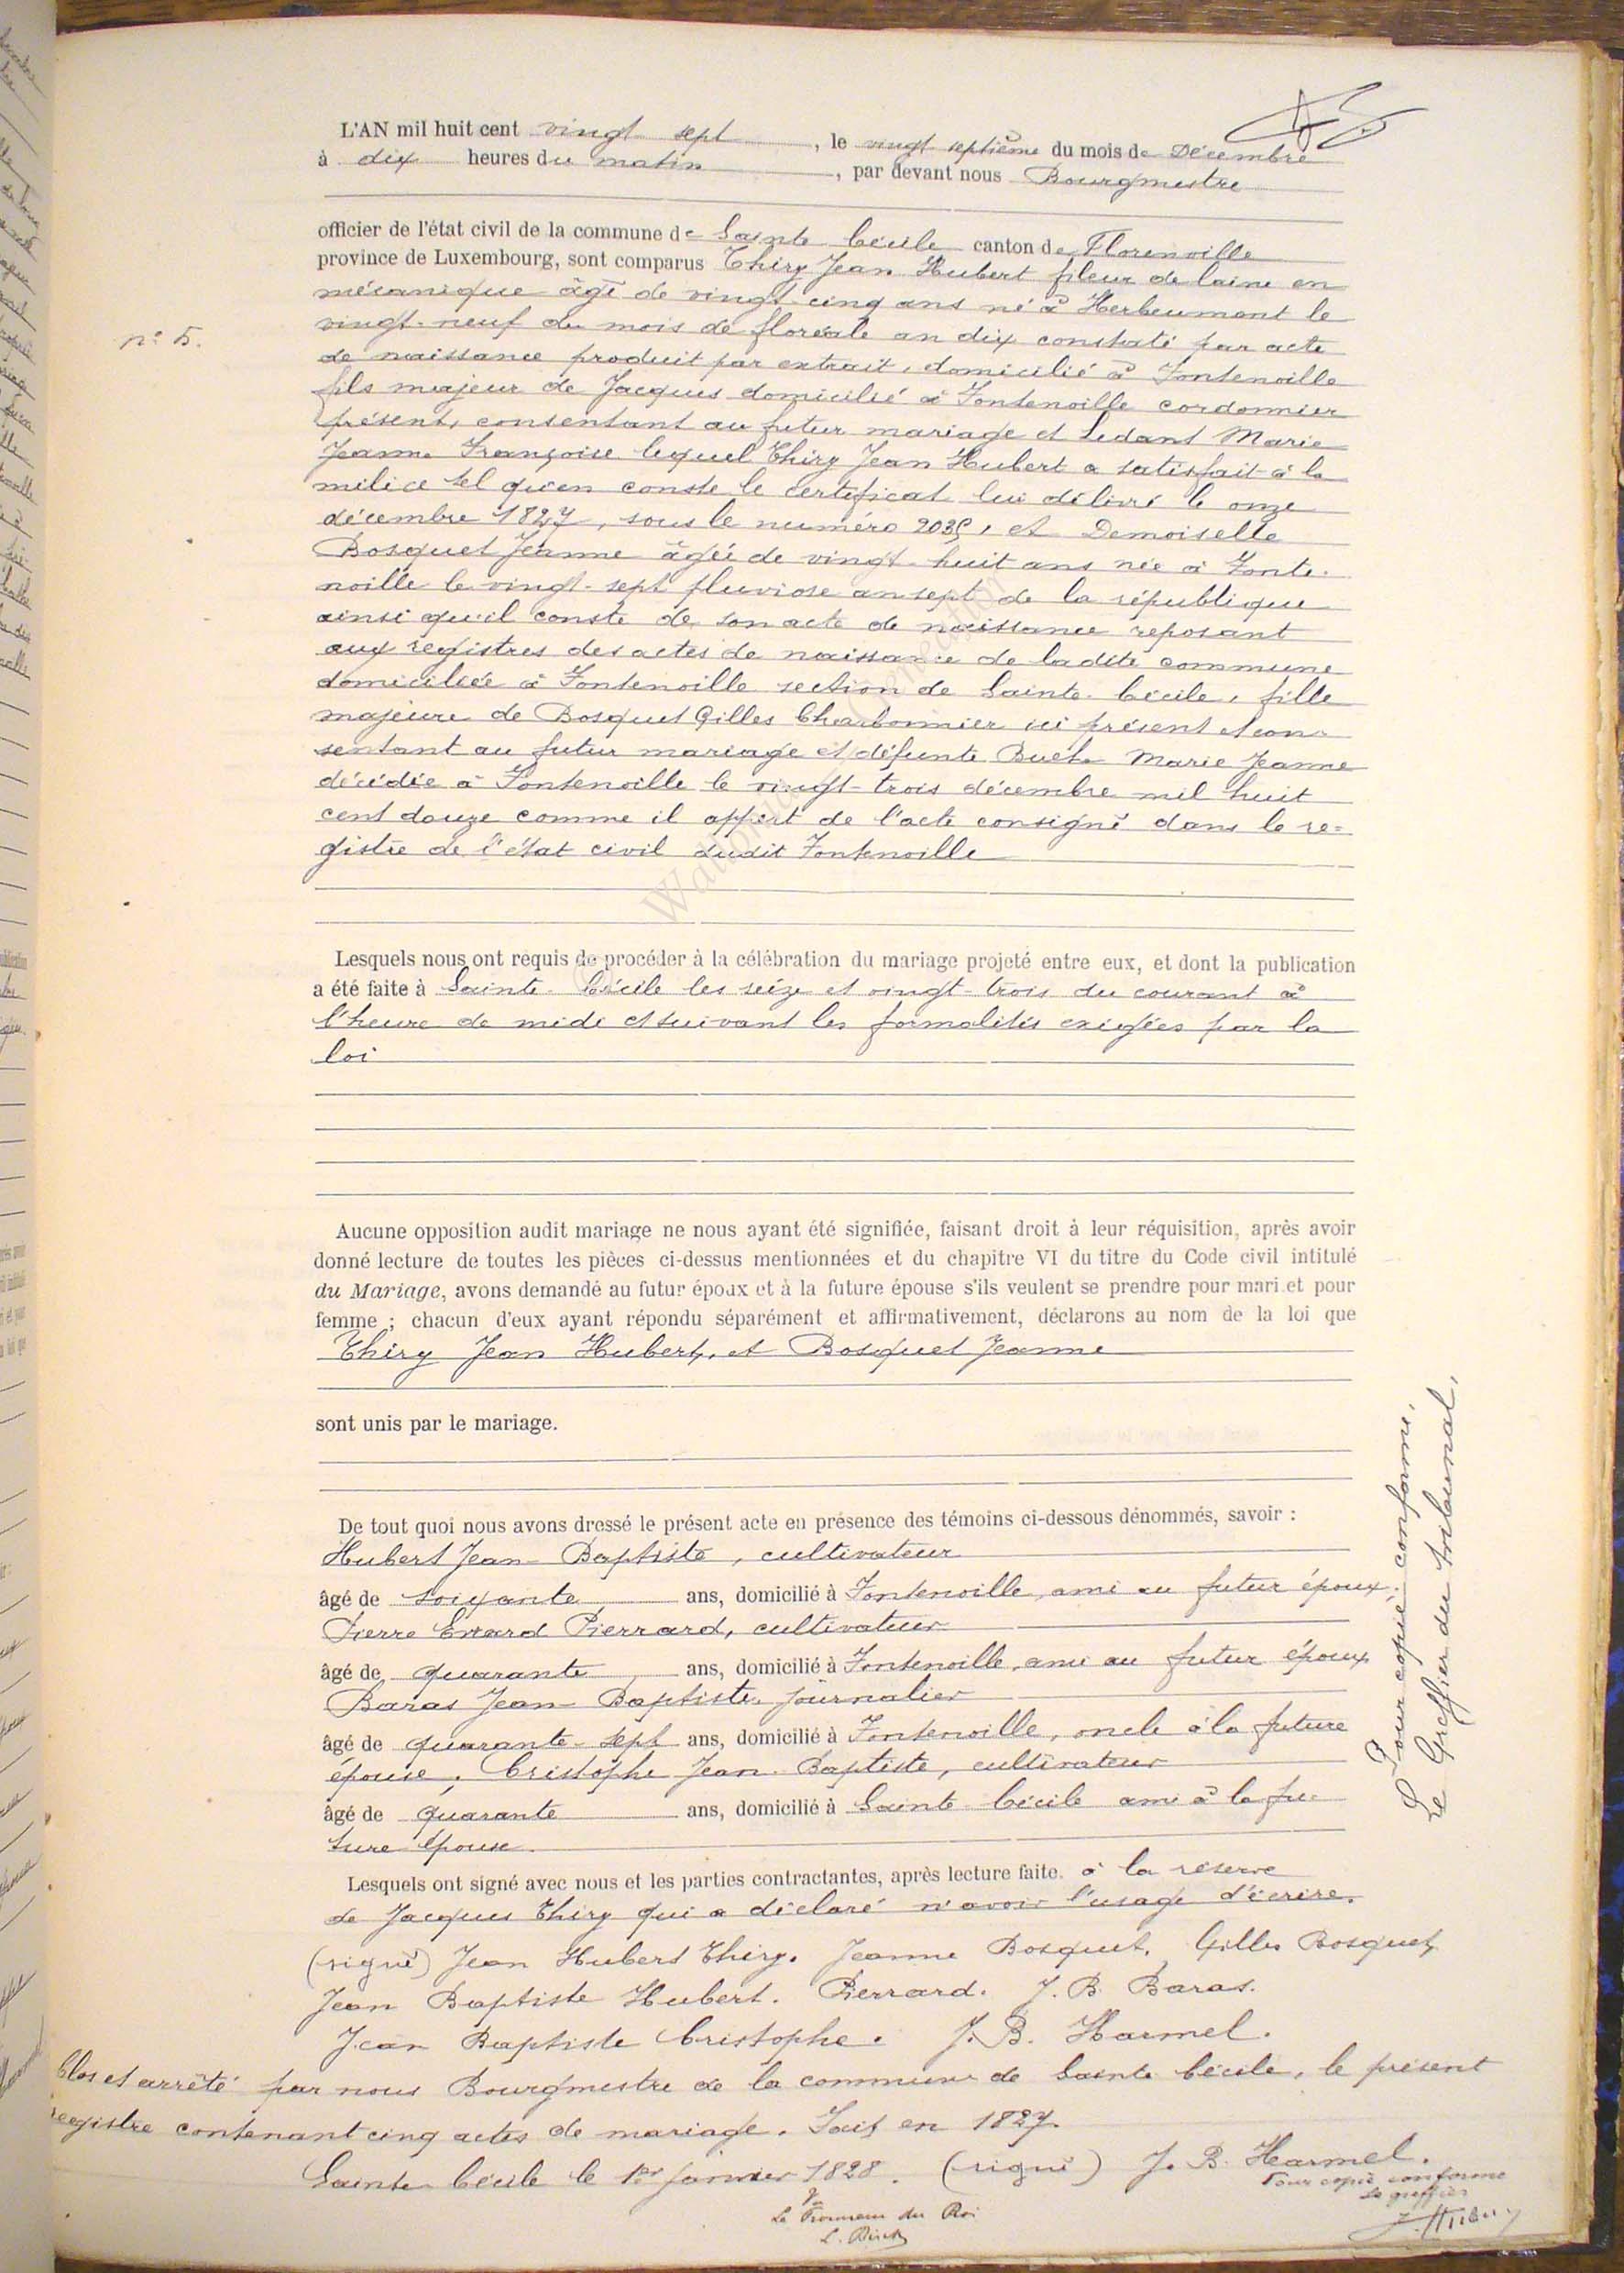 L'AN mil huit cent vingt sept, le vingt septième du mois de Décembre
à dix heures du matin, par devant nous Bourgmestre
officier de l'état civil de la commune de Sainte Cécile canton de Florenville
province de Luxembourg, sont comparus Thiry Jean Hubert fileur de laine en
mécanique âgé de vingt-cinq ans né à Herbeumont le
n° 5.
vingt-neuf du mois de floréale an dix constaté par acte
de naissance produit par extrait, domicilié à Fontenoille
fils majeur de Jacques domicilié à Fontenoille cordonnier
présent, consentant au futur mariage et Ledant Marie
Jeanne Françoise lequel Thiry Jean Hubert a satisfait à la
milice tel qu'en conste le certificat lui délivré le onze
décembre 1827, sous le numéro 2035, et Demoiselle
Bosquet Jeanne âgée de vingt-huit ans née à Fonte-
noille le vingt-sept pluviose an sept de la république
ainsi qu'il conste de son acte de naissance reposant
aux registres des actes de naissance de ladite commune
domiciliée à Fontenoille section de Sainte-Cécile, fille
majeure de Bosquet Gilles Charbonnier ici présent et con-
sentant au futur mariage et défunte Marie Jeanne
décédée à Fontenoille le vingt-trois décembre mil huit
cent douze comme il appert de l'acte consigné dans le re=
gistre de l'état civil dudit Fontenoille
Lesquels nous ont requis de procéder à la célébration du mariage projeté entre eux, et dont la publication
a été faite à Sainte-Cécile les seize et vingt-trois du courant à
l'heure de midi et suivant les formalités exigées par la
loi
Aucune opposition audit mariage ne nous ayant été signifiée, faisant droit à leur réquisition, après avoir
donné lecture de toutes les pièces ci-dessus mentionnées et du chapitre VI du titre du Code civil intitulé
du Mariage, avons demandé au futur époux et à la future épouse s'ils veulent se prendre pour mari et pour
femme ; chacun d'eux ayant répondu séparément et affirmativement, déclarons au nom de la loi que
Thiry Jean Hubert, et Bosquet Jeanne
sont unis par le mariage.
De tout quoi nous avons dressé le présent acte en présence des témoins ci-dessous dénommés, savoir :
Hubert Jean-Baptiste, cultivateur
âgé de soixante ans, domicilié à Fontenoille, ami au futur époux.
Pierre Errard Pierrard, cultivateur
âgé de quarante ans, domicilié à Fontenoille, ami au futur époux
Baras Jean Baptiste, journalier
âgé de quarante-sept ans, domicilié à Fontenoille, oncle à la future
épouse. Cristophe Jean-Baptiste, cultivateur
âgé de quarante ans, domicilié à Sainte Cécile ami à la fu-
ture épouse.
Lesquels ont signé avec nous et les parties contractantes, après lecture faite. à la réserve
de Jacques Thiry qui a déclaré n'avoir l'usage d'écrire.
(signé) Jean Hubert Thiry. Jeanne Bosquet, Gilles Bosquet,
Jean Baptiste Hubert. Pierrard. J. B. Baras.
Jean Baptiste Cristophe. J. B. Harmel.
Clos et arrêté par nous Bourgmestre de la commune de Sainte Cécile, le présent
registre contenant cinq actes de mariage. Fait en 1827.
Sainte Cécile le 1er janvier 1828. (signé) J. B. Harmel.
Pour copie conforme
Le greffier
Le Procureur du Roi
Pour copie conforme,
Le Greffier du tribunal,